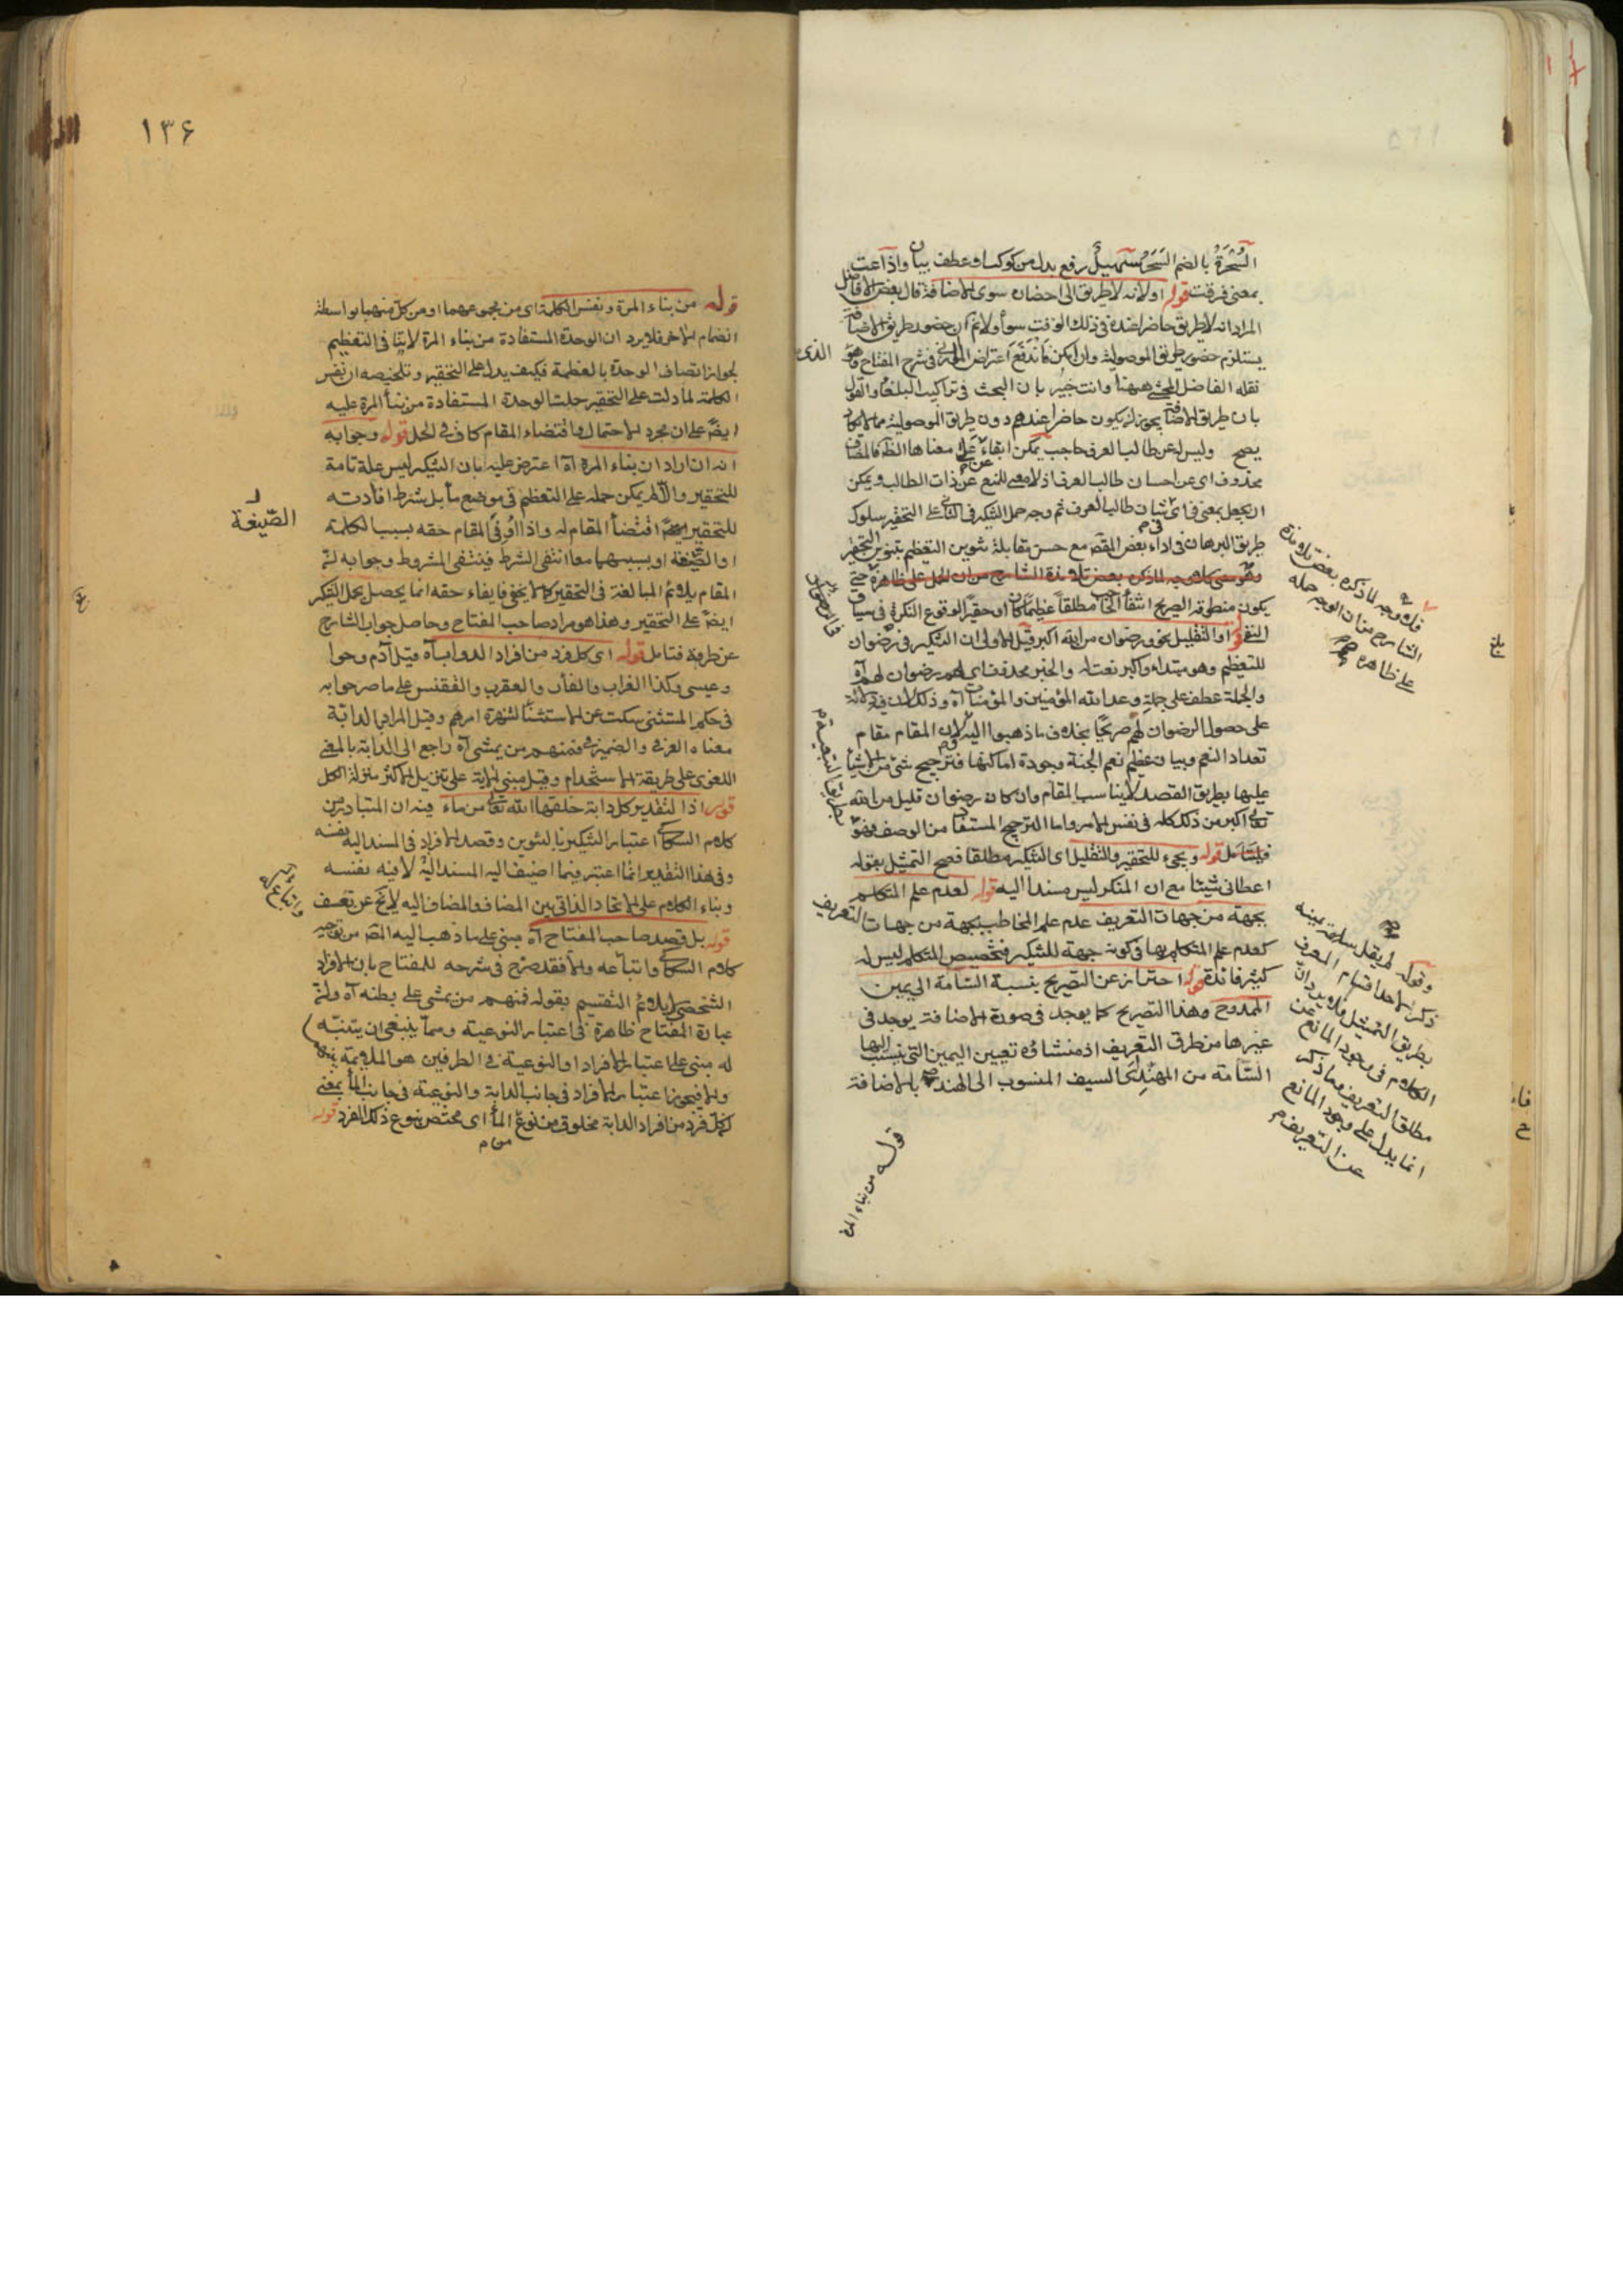 السُّحْرَةُ بالضم السَحَرُ سُهَيلٌ رفع بدل من كوكب او عطف بيان واذاعت
بمعنى فرقت قوله او لانه لا طريق الى احضاره سوى الاضافة قال بعض الافاضل
المراد انه لا طريق حاضرا عنده في ذلك الوقت سواه ولا ثم ان حضور طريق الاضافة
يستلزم حضور طريق الموصولية وان امكن فاندفع اعتراض في شرح المفتاح وهو
الذي
نقله الفاضل المحشى ههنا وانت خبير بان البحث في تراكيب البلغاء والقول
بان طريق الاضافة يجوز ان يكون حاضرا عندهم دون طريق الموصولية مما لا يكاد
يصح وليس له عن طالب العرف حاجب يمكن ابقاء عن على معناها الظ فالمضاف
محذوف اى عن احسان طالب العرف اذ لا معنى للمنع عن ذات الطالب ويمكن
ان يجعل بمعنى في اى في شان طالب العرف ثم وجه حمل التنكير في الثانى على التحقير سلوك
طريق البرهان في اداء بعض المقصد مع حسن مقابلة تنوين التعظيم بتنوين التحقير
فلا وجه لما ذكره بعض تلامذة
الشارح من ان الوجه حمله
على ظاهره
يكون منطوقه الصريح انتفاء الحاجب مطلقاً عظيما كان او حقيرا لوقوع النكرة في سياق
النفى قوله او التقليل نحو ورضوان من الله اكبر قيل الاولى ان التنكير في رضوان
للتعظيم وهو مبتداء واكبر نعت له والخبر محذوف اى لهم رضوان لهم آه
والجملة عطف على جملة وعد الله المؤمنين والمؤمنات آه وذلك لان فيه دلالة
على حصول الرضوان لهم صريحا بخلاف ما ذهبوا اليه ولان المقام مقام
تعداد النعم وبيان عظم نعم الجنة وجودة اماكنها فترجيح شئ من الاشياء
عليها بطريق القصد لا يناسب المقام وان كان رضوان قليل من الله
تعالى اكبر من ذلك كله في نفس الامر واما الترجيح المستفاد من الوصف فهو
فليتأمل قوله ويجىء للتحقير والتقليل اى التنكير مطلقا فصح التمثيل بقوله
اعطانى شيئا مع ان المنكر ليس مسندا اليه قوله لعدم علم المتكلم
بجهة من جهات التعريف عدم علم المخاطب بجهة من جهات التعريف
كعدم علم المتكلم بها في كونه جهة للتنكير فتخصيص المتكلم ليس له
كثير فائدة قوله احتراز عن التصريح بنسبة السآمة الى يمين
الممدوح وهذا التصريح كما يوجد في صورة الاضافة يوجد في
غيرها من طرق التعريف اذ منشاؤه تعيين اليمين التى ينسب اليها
السّآمة من المهنّد اى السيف المنسوب الى الهند بالاضافة
وقوله لم يقل سامته يمينه
ذكر لاحد اقسام المعرف
بطريق التمثيل فلا يرد ان
الكلام في وجود المانع عن
مطلق التعريف وما ذكر
انما يدل على وجود المانع
عن التعريف
قوله من بناء المرة
١٣۶
قوله من بناء المرة ونفس الكلمة اى من مجموعهما او من كل منهما بواسطة
انضمام الاخر فلا يرد ان الوحدة المستفادة من بناء المرة لا ينافى التعظيم
لجواز اتصاف الوحدة بالعظمة فكيف يدل على التحقير وتلخيصه ان نفس
الكلمة لما دلت على التحقير حملت الوحدة المستفادة من بناء المرة عليه
ايضا على ان مجرد الاحتمال واقتضاء المقام كاف في الحمل قوله وجوابه
انه ان اراد ان بناء المرة آه اعترض عليه بان التنكير ليس علة تامة
للتحقير والا لم يمكن حمله على التعظيم في موضع ما بل شرط افادته
للتحقير اقتضاء المقام له واذا اُوفى المقام حقه بسبب الكلمة
الصّيغة
او الصّيغة او بسببهما معا انتفى الشرط فينتفى المشروط وجوابه ان
المقام يلائم المبالغة في التحقير كما لا يخفى فايفاء حقه انما يحصل بحمل التنكير
ايضا على التحقير وهذا هو مراد صاحب المفتاح وحاصل جواب الشارح
عن طرفه فتامل قوله اى كل فرد من افراد الدواب آه قيل آدم وحوا
وعيسى وكذا الغراب والفأر والعقرب والققنس على ما صرحوا به
في حكم المستثنى سكت عن الاستثناء لشهرة امرهم وقيل المراد بالدابة
معناه العرفى والضمير في فمنهم من يمشى آه راجع الى الدابة بالمعنى
اللغوى على طريقة الاستخدام وقيل مبنى الاية على تنزيل الاكثر منزلة الكل
قوله اذ التقدير كل دابة خلقها الله تعالى من ماء فيه ان المتبادر من
كلام السكاكى اعتبار التنكير بالتنوين وقصد الافراد في المسند اليه نفسه
وفي هذا التقدير انما اعتبر فيما اضيف اليه المسند اليه لا فيه نفسه
وبناء الكلام على الاتحاد الذاتى بين المضاف والمضاف اليه لا يخ عن تعسف
قوله بل قصد صاحب المفتاح آه مبنى على ما ذهب اليه المص من توجيه
كلام السكاكى واتباعه والا فقد صرح في شرحه للمفتاح بان الافراد
الشخصى لا يلائم التقسيم بقوله فمنهم من يمشى على بطنه آه وان
عبارة المفتاح ظاهرة في اعتبار النوعية ومما ينبغى ان يتنبّه
له مبنى على اعتبار الافراد او النوعية في الطرفين هو الملايمة
والا فيجوز اعتبار الافراد في جانب الدابة والنوعية في جانب الماء بمعنى
ان كل فرد من افراد الدابة مخلوق من نوع من الماء اى مختص بنوع ذلك الفرد قوله